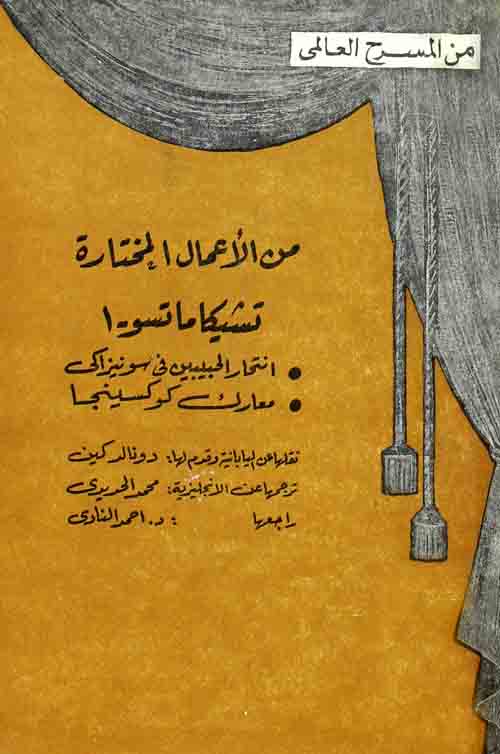 من المسرح العالمى
من الأعمال المختارة
تشيكاماتسو - ١
• انتحار الحبيبين فى سونيزاكى
• معارك كوكسينجا
نقلها عن اليابانية وقدم لها: دونالد كين
ترجمها عن الانجليزية: محمد الحديدى
راجعها : د. احمد النادى